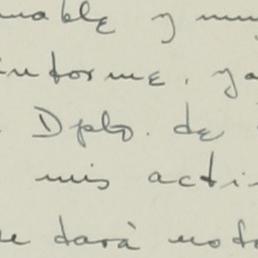 nable y muy
informe. ya
Dpto. de
mis acti
e dará nota